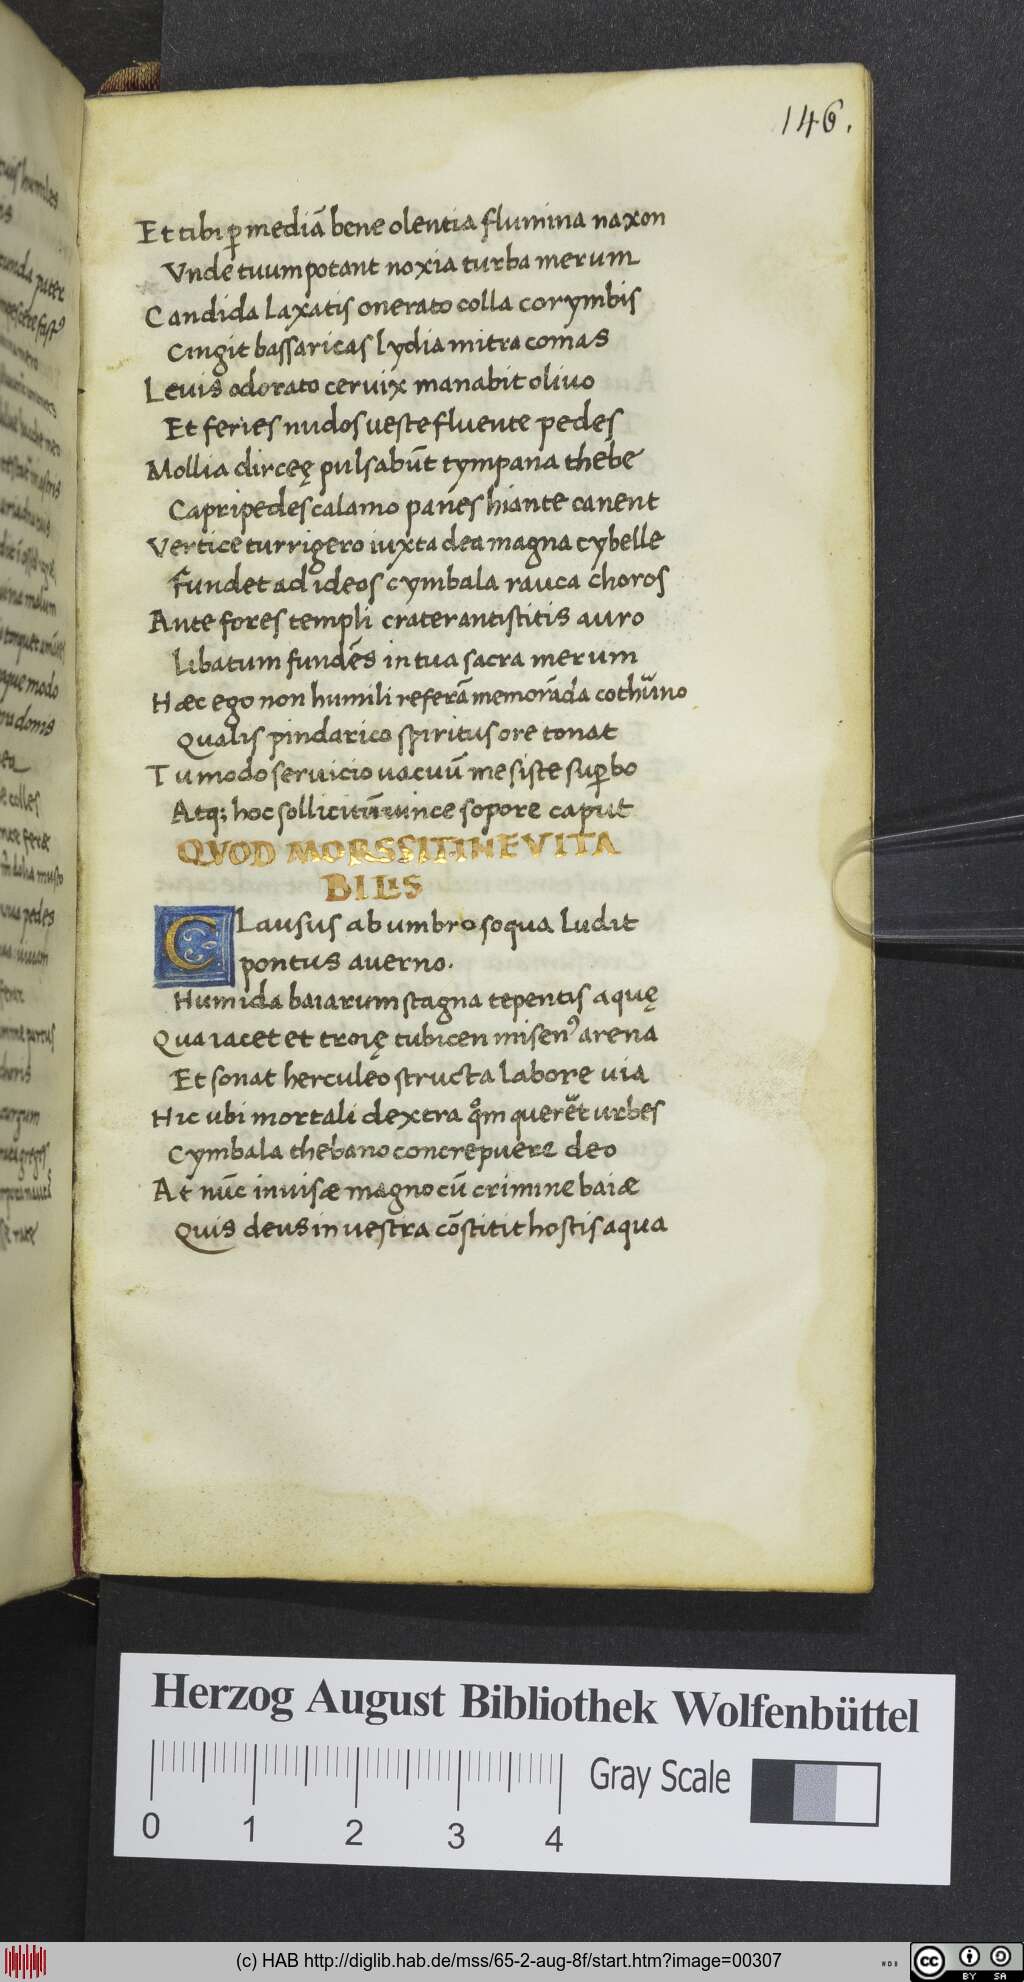 146.
Et tibi ꝑ mediā bene olentia flumina naxon
Vnde tuum potant noxia turba merum
Candida laxatis onerato colla corymbis
Cingit bassaricas lydia mitra comas
Levis odorato cervix manabit olivo
Et feries nudos ueste fluente pedes
Mollia dirceę pulsabūt tympana thebe
Capripedes calamo panes hiante canent
Vertice turrigero iuxta dea magna cybelle
Fundet ad ideos cymbala rauca choros
Ante fores templi crater antistitis auro
Libatum fundēs in tua sacra merum
Hæc ego non humili referā memorāda cothūno
Qualis pindarico spiritus ore tonat
Tu modo seruicio uacuū me siste suꝑbo
Atq; hoc sollicitū uince sopore caput
QVOD MORS SIT INEVITA
BILIS
CLausus ab umbroso qua ludit
pontus averno.
Humida baiarum stagna tepentis aquę
Qua iacet et troię tubicen misenꝰ arena
Et sonat herculeo structa labore uia
Hic ubi mortali dextra qͦm querēt urbes
Cymbala thebano concrepuere deo
At nūc inuisæ magno cū crimine baiæ
Quis deus in uestra cōstitit hostis aqua
Herzog August Bibliothek Wolfenbüttel
Gray Scale
0 1 2 3 4
(c) HAB http://diglib.hab.de/mss/65-2-aug-8f/start.htm?image=00307
cc BY SA